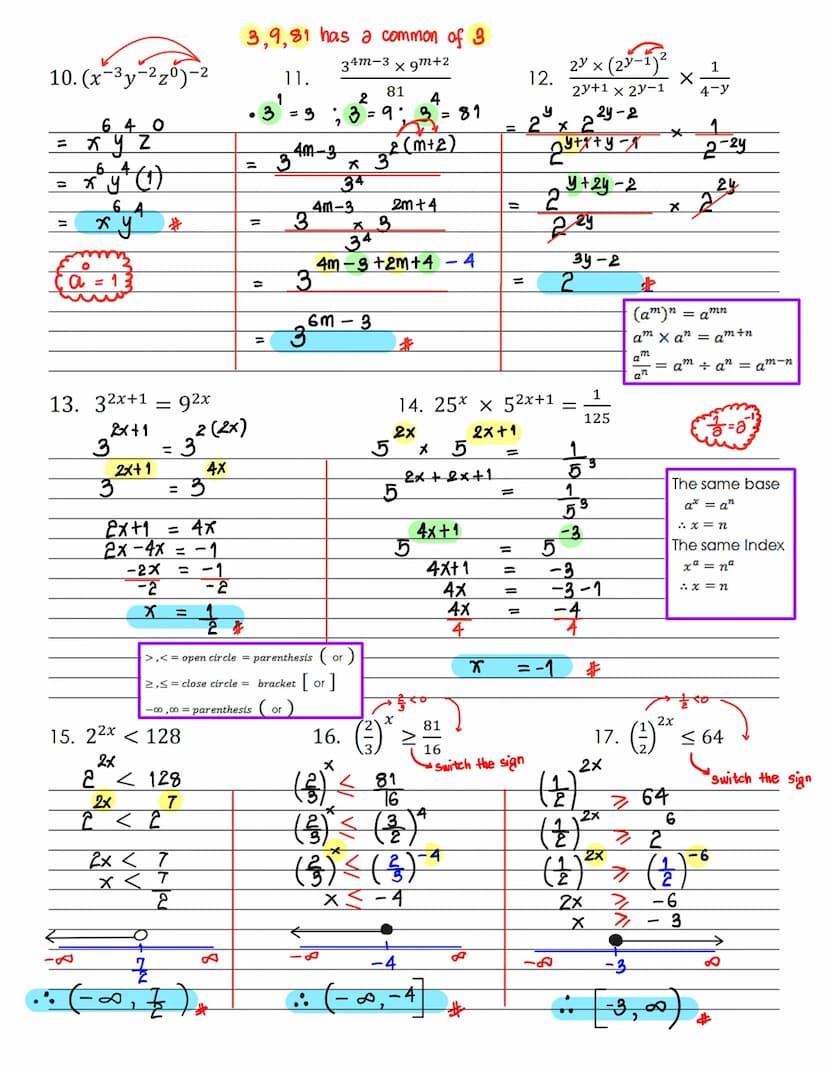 3,9,81 has a common of 3
10. (x⁻³y⁻²z⁰)⁻²
= x⁶ y⁴ z⁰
= x⁶ y⁴ (1)
= x⁶ y⁴ #
a⁰ = 1
11. (3⁴ᵐ⁻³ × 9ᵐ⁺²) / 81
• 3¹ = 3 ; 3² = 9 ; 3⁴ = 81
= (3^(4m−3) × 3^(2(m+2))) / 3⁴
= (3^(4m−3) × 3^(2m+4)) / 3⁴
= 3^(4m−3+2m+4−4)
= 3^(6m−3) #
12. (2^y × (2^(y−1))²) / (2^(y+1) × 2^(y−1)) × 1 / 4^(−y)
= (2^y × 2^(2y−2)) / 2^(y+1+y−1) × 1 / 2^(−2y)
= 2^(y+2y−2) / 2^(2y) × 2^(2y)
= 2^(3y−2) #
(aᵐ)ⁿ = aᵐⁿ
aᵐ × aⁿ = aᵐ⁺ⁿ
aᵐ / aⁿ = aᵐ ÷ aⁿ = aᵐ⁻ⁿ
13. 3^(2x+1) = 9^(2x)
3^(2x+1) = 3^(2(2x))
3^(2x+1) = 3^(4x)
2x+1 = 4x
2x−4x = −1
−2x / −2 = −1 / −2
x = 1/2 #
14. 25^x × 5^(2x+1) = 1/125
5^(2x) × 5^(2x+1) = 1/5³
5^(2x+2x+1) = 1/5³
5^(4x+1) = 5^(−3)
4x+1 = −3
4x = −3−1
4x / 4 = −4 / 4
x = −1 #
1/a = a⁻¹
The same base
aˣ = aⁿ
∴ x = n
The same Index
xᵃ = nᵃ
∴ x = n
>,< = open circle = parenthesis ( or )
≥,≤ = close circle = bracket [ or ]
−∞,∞ = parenthesis ( or )
15. 2^(2x) < 128
2^(2x) < 128
2^(2x) < 2^7
2x < 7
x < 7/2
−∞ 7/2 ∞
∴ (−∞, 7/2) #
2/3 < 0
16. (2/3)^x ≥ 81/16
switch the sign
(2/3)^x ≤ 81/16
(2/3)^x ≤ (3/2)^4
(2/3)^x ≤ (2/3)^(−4)
x ≤ −4
−∞ −4 ∞
∴ (−∞, −4] #
1/2 < 0
17. (1/2)^(2x) ≤ 64
switch the sign
(1/2)^(2x) ≥ 64
(1/2)^(2x) ≥ 2^6
(1/2)^(2x) ≥ (1/2)^(−6)
2x ≥ −6
x ≥ −3
−∞ −3 ∞
∴ [−3, ∞) #